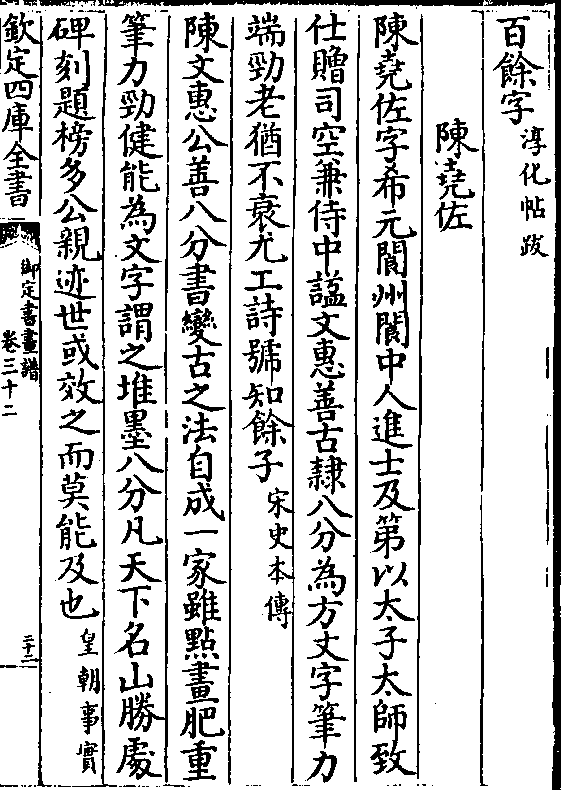 百餘字淳化帖跋
陳堯佐
陳堯佐字希元閬州閬中人進士及第以太子太師致
仕贈司空兼侍中諡文惠善古隸八分為方丈字筆力
端勁老猶不衰尤工詩號知餘子宋史本傳
陳文惠公善八分書變古之法自成一家雖點畫肥重
筆力勁健能為文字謂之堆墨八分凡天下名山勝處
碑刻題榜多公親迹世或效之而莫能及也皇朝事實
欽定四庫全書
御定書畫譜
卷三十二
二十二